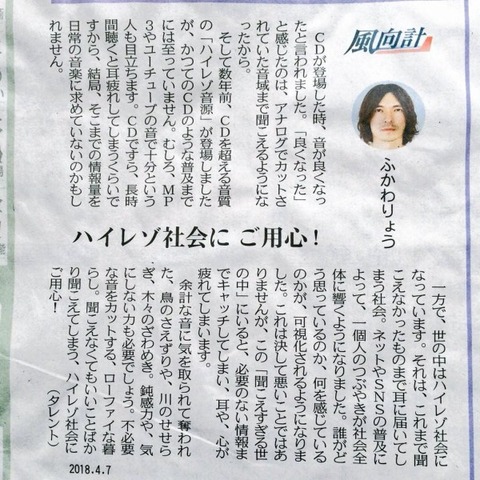 風向計
ふかわりょう
ハイレゾ社会に ご用心!
CDが登場した時、音が良くなっ
たと言われました。「良くなった」
と感じたのは、アナログでカットさ
れていた音域まで聞こえるようにな
ったから。
そして数年前、CDを超える音質
の「ハイレゾ音源」が登場しました
が、かつてのCDのような普及まで
には至っていません。むしろ、MP
3やユーチューブの音で十分という
人も目立ちます。CDですら、長時
間聴くと耳疲れしてしまうくらいで
すから、結局、そこまでの情報量を
日常の音楽に求めていないのかもし
れません。
一方で、世の中はハイレゾ社会に
なっています。それは、これまで聞
こえなかったものまで耳に届いてし
まう社会。ネットやSNSの普及に
よって、一個人のつぶやきが社会全
体に響くようになりました。誰がど
う思っているのか、何を感じている
のかが、可視化されるようになりま
した。これは決して悪いことではあ
りませんが、この「聞こえすぎる世
の中」にいると、必要のない情報ま
でキャッチしてしまい、耳や、心が
疲れてしまいます。
余計な音に気を取られて奪われ
た、鳥のさえずりや、川のせせら
ぎ、木々のざわめき。鈍感力や、気
にしない力も必要でしょう。不必要
な音をカットする、ローファイな暮
らし。聞こえなくてもいいことばか
り聞こえてしまう、ハイレゾ社会に
ご用心!
(タレント)
2018.4.7